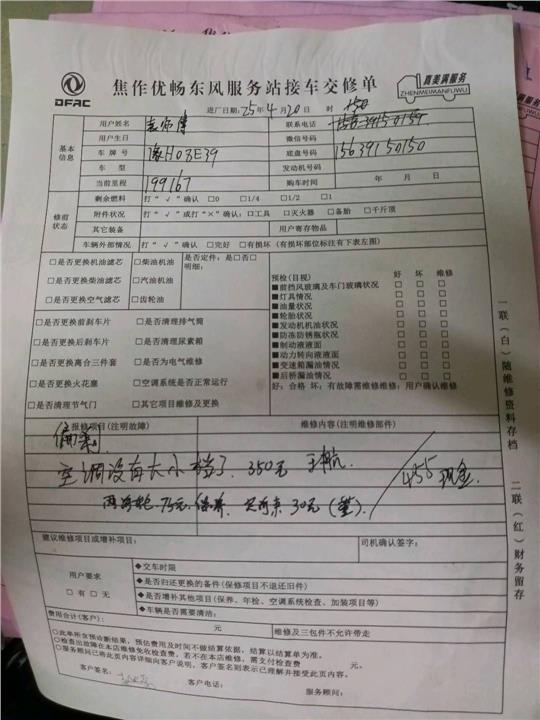 DFAC
焦作优畅东风服务站接车交修单
真美满服务
ZHENMEIMANFUWU
进厂日期：25年4月20日 时
用户姓名 联系电话
用户生日 微信号码
基本信息
车牌号 豫H03E39 底盘号码 15639150150
车型 发动机号码
当前里程 199167 购车时间 年 月 日
修前状态
剩余燃料 打“√”确认 □0 □1/4 □1/2 □1
附件状况 打“√”或打“×”确认：□工具 □灭火器 □备胎 □千斤顶
其它装备 用户寄存物品
车辆外部情况 打“√”确认 □完好 □有损坏（有损坏部位标注有下表左图）
□是否更换机油滤芯 □柴油机油 是否定件：是□否□
明细：
□是否更换柴油滤芯 □汽油机油
□是否更换空气滤芯 □齿轮油
□是否更换前刹车片 □是否清理排气筒
□是否更换后刹车片 □是否清理尿素箱
□是否更换离合三件套 □是否为电气维修
□是否更换火花塞 □空调系统是否正常运行
□是否清理节气门 □其它项目维修及更换
预检（目视） 好 坏 维修
■前挡风玻璃及车门玻璃状况 □ □ □
■灯具情况 □ □ □
■油量状况 □ □ □
■轮胎状况 □ □ □
■发动机机油状况 □ □ □
■防冻防锈瓶状况 □ □ □
■制动液液面 □ □ □
■动力转向液液面 □ □ □
■变速箱漏油情况 □ □ □
■后桥漏油情况 □ □ □
好：合格 坏：有故障需维修维修：用户确认维修
报修项目（注明故障） 维修内容（注明维修部件）
偏刹
空调没有大小档了. 350元 王航.
两前轮. 75元. 保养. 30元
455 现金.
建议维修项目或增补项目： 司机确认签字：
用户要求
□有 □无
◆交车时限
◆是否归还更换的备件（保修项目不退还旧件）
◆是否增补其他项目（保养、年检、空调系统检查、加装项目等）
◆车辆是否需要清洁：
费用合计（客户）： 元 维修及三包件不允许带走
○此单所含预诊断结果，预估费用及时间不做结算依据，结算以结算单为准。
○检查出故障在本店维修免收检查费，若不在本店维修，需支付检查费 元。
○服务顾问已将此页内容详细向客户说明，客户签名则表示已理解并接受此页内容。
客户签名： 客户电话： 服务顾问：
一联（白）随维修资料存档 二联（红）财务留存